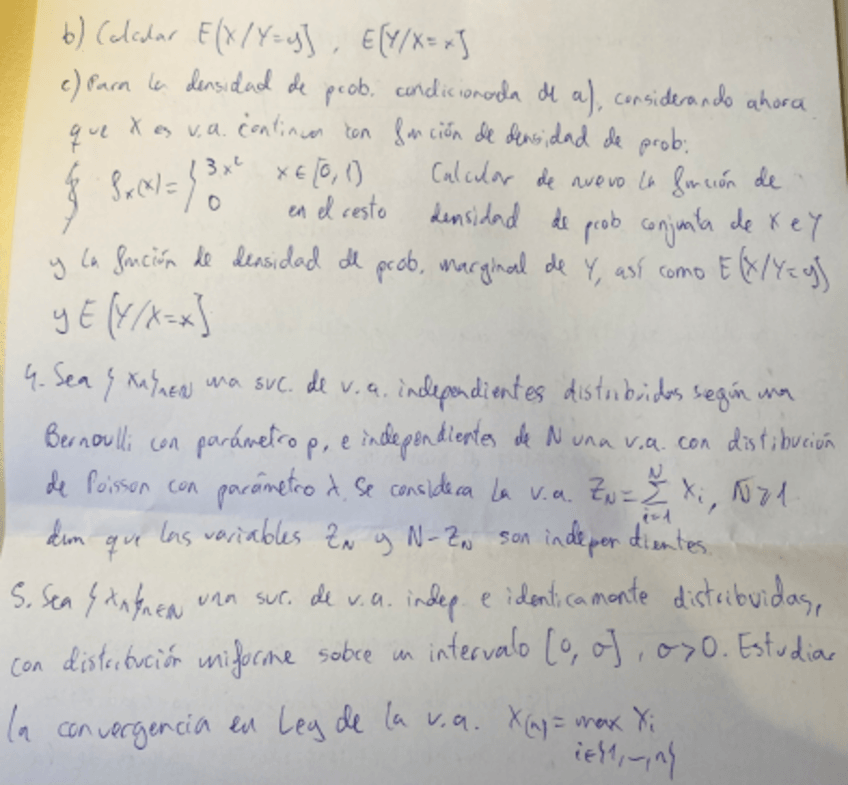 b) Calcular E[X/Y=y], E[Y/X=x]
c) Para la densidad de prob. condicionada de a), considerando ahora
que X es v.a. continua con función de densidad de prob:
fₓ(x) = { 3x² x ∈ [0, 1) Calcular de nuevo la función de
0 en el resto densidad de prob conjunta de X e Y
y la función de densidad de prob. marginal de Y, así como E[X/Y=y]
y E[Y/X=x]
4. Sea {Xn}n∈N una suc. de v.a. independientes distribuidas según una
Bernoulli con parámetro p, e independientes de N una v.a. con distibución
de Poisson con parámetro λ. Se considera la v.a. Z_N = Σ_{i=1}^{N} Xi, N≥1
dem que las variables Z_N y N-Z_N son independientes.
5. Sea {Xn}n∈N una suc. de v.a. indep. e identicamente distribuidas,
con distribución uniforme sobre un intervalo [0, σ], σ>0. Estudiar
la convergencia en Ley de la v.a. X(n) = max Xi
i∈{1,...,n}